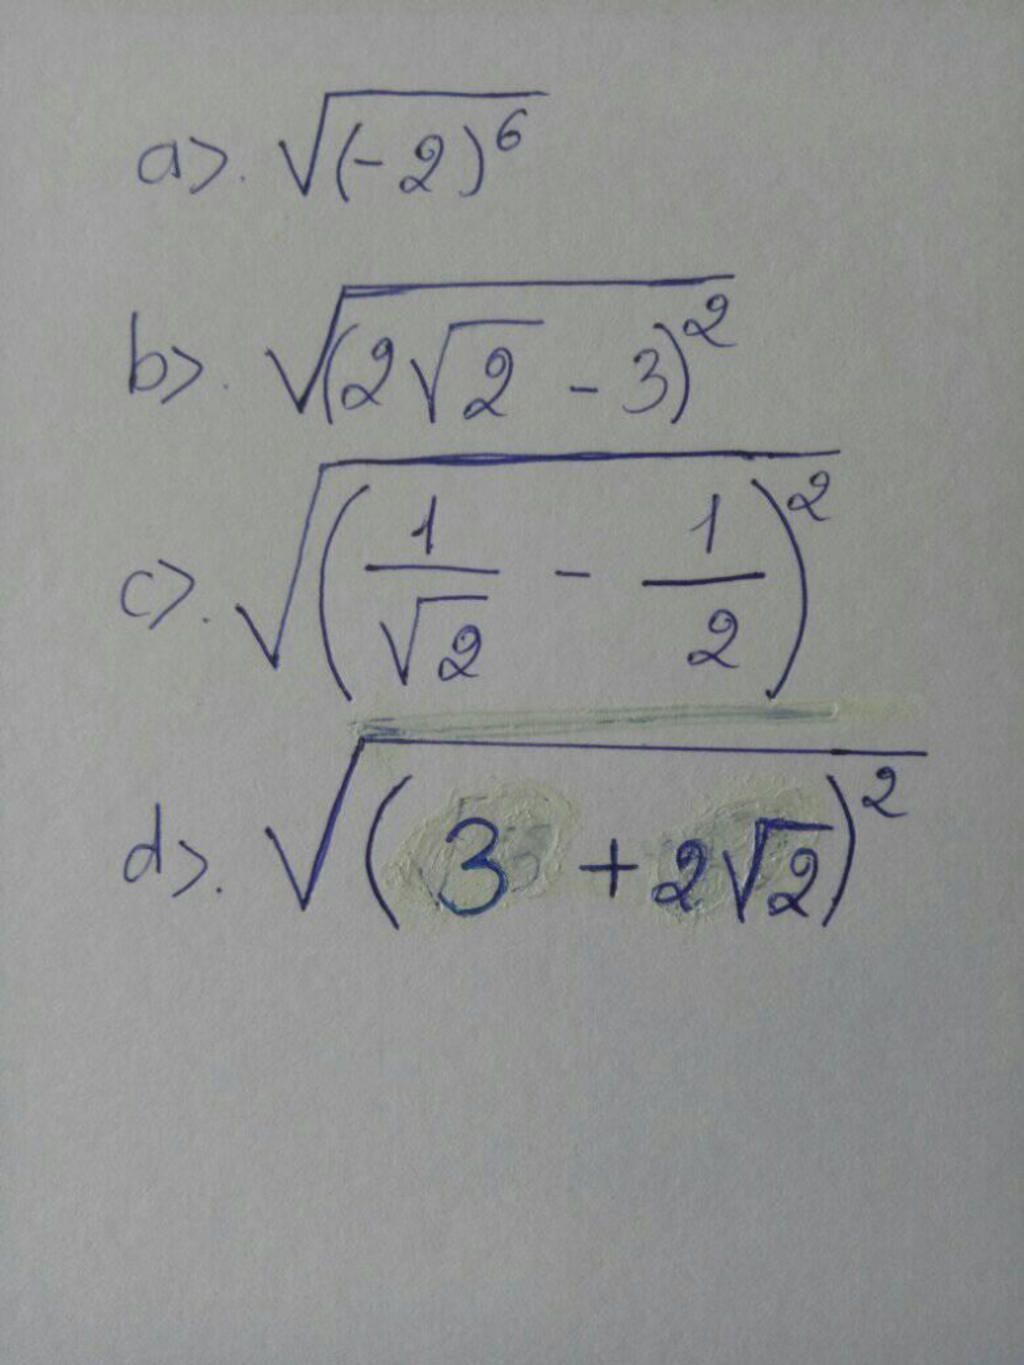 a>. √(-2)⁶
b>. √(2√2 - 3)²
c>. √(1/√2 - 1/2)²
d>. √(3 + 2√2)²